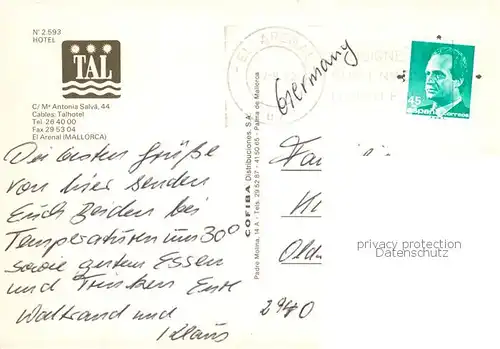 N° 2.593
HOTEL
TAL
C/ Mª Antonia Salvá, 44
Cables: Talhotel
Tel. 26 40 00
Fax 29 53 04
El Arenal (MALLORCA)
Die besten Grüße
von hier senden
Euch beiden bei
Temperaturen um 30°
sowie gutem Essen
und Trinken Eure
Waltraud und
Klaus
COFIBA Distribuciones, S.A.
Padre Molina, 14 A - Tels. 29 52 87 - 41 50 65 - Palma de Mallorca
EL ARENAL
Germany
45
España correos
Fa
Olde
privacy protection
AnsichtskartenVersand
2940